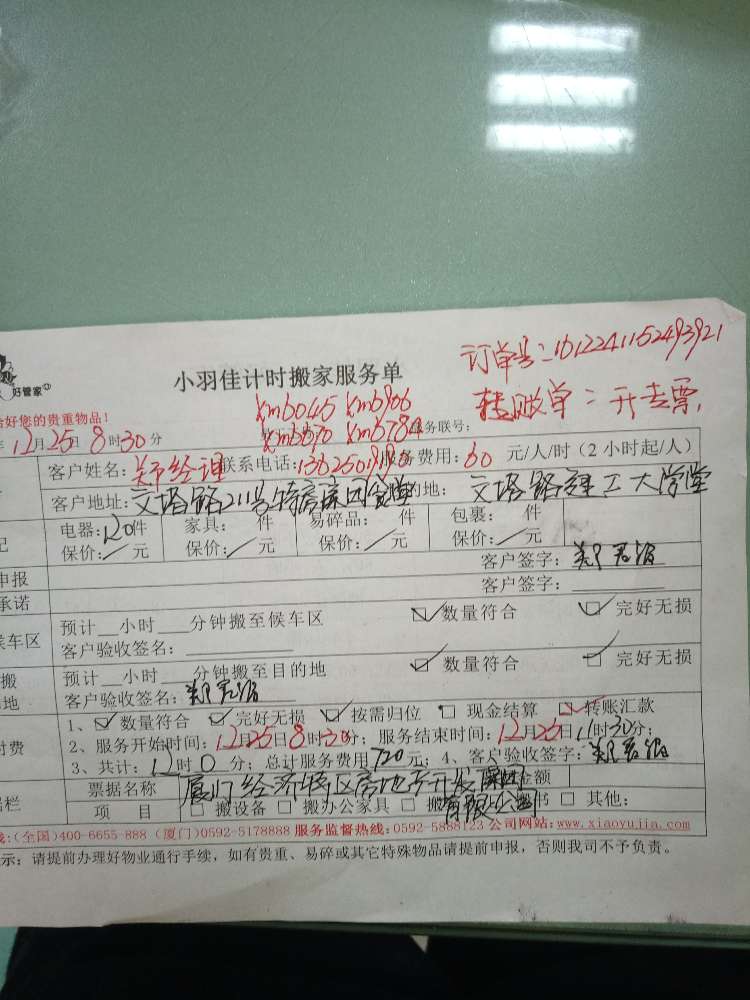 订单号:1612241152493921
转账单:开专票
好管家
小羽佳计时搬家服务单
恰好您的贵重物品!
xm6045 xm6906
xm6670 xm6784 服务联号:
12月25日8时30分
客户姓名:郑经理 联系电话: 服务费用:60 元/人/时(2小时起/人)
客户地址:文塔路211号特房集团食堂 的地: 文塔路理工大学堂
电器:20件 家具: 件 易碎品: 件 包裹: 件
保价:/元 保价:/元 保价:/元 保价:/元
申报 客户签字:郑君滔
承诺 客户签字:
预计__小时___分钟搬至候车区 ☑数量符合 ☑完好无损
候车区 客户验收签名:
预计__小时___分钟搬至目的地 ☑数量符合 ☑完好无损
客户验收签名:郑君滔
1、☑数量符合 ☑完好无损 ☑按需归位 □现金结算 ☑转账汇款
2、服务开始时间:12月25日8时30分; 服务结束时间:12月25日11时30分;
3、共计:12时0分; 总计服务费用720元; 4、客户验收签字:郑君滔
票据名称 厦门经济特区房地产开发集团有限公司 金额
项 目 □搬设备 □搬办公家具 □搬 □ 其他:
线:(全国)400-6655-888 (厦门)0592-5178888 服务监督热线:0592-5888123 公司网站:www.xiaoyujia.com
示:请提前办理好物业通行手续,如有贵重、易碎或其它特殊物品请提前申报,否则我司不予负责。